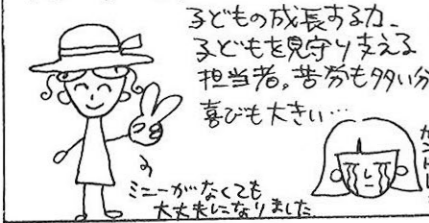 子どもの成長する力、
子どもを見守り支える
担当者。苦労も多い分
喜びも大きい…
ミニーがなくても
大丈夫になりました